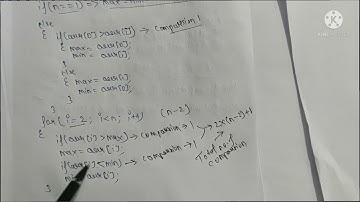 if(n==1) => max=min
else
{ if(arr[0]>arr[1]) → comparison 1
{ max = arr[0];
min = arr[1];
}
else
{ max = arr[1];
min = arr[0];
}
}
for( i=2; i<n; i++) (n-2)
{ if(arr[i]>max) → comparison → 1 → 2x(n-2)+1
max=arr[i]; Total no. of comparison
if(arr[i]<min) → comparison → 1
arr[i];
}
KINEMASTER